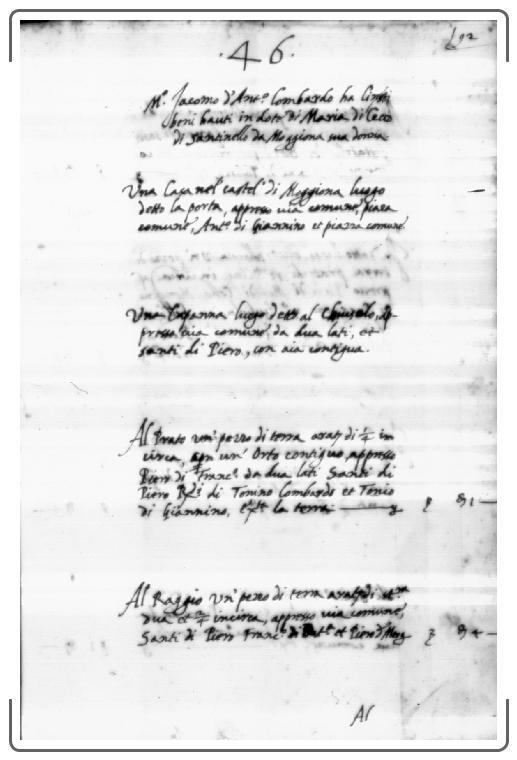 ·46·
M.º Jacomo d'Ant.º Lombardo ha l'inst.ti
beni hauti in dote di Maria di Cecco
di Santinello da Moggiona sua donna
Una Casa nel castel.º di Moggiona luogo
detto la porta, appresso via comune, piaza
comune, Ant.º di Giannino et piazza comune
Una Capanna luogo detto al Chiusolo, ap-
presso via comune da dua lati, et
Santi di Piero, con aia contigua.
Al Prato un' pezzo di terra di in
circa, con un' Orto contiguo, appresso
Piero di Franc.º da dua lati Santi di
Piero di Tonino Lombardo et Tonio
di Giannino, la terra
Al Raggio un' pezzo di terra di
dua et incirca, appresso via comune,
Santi di Piero Franc.º di et Piero
Al